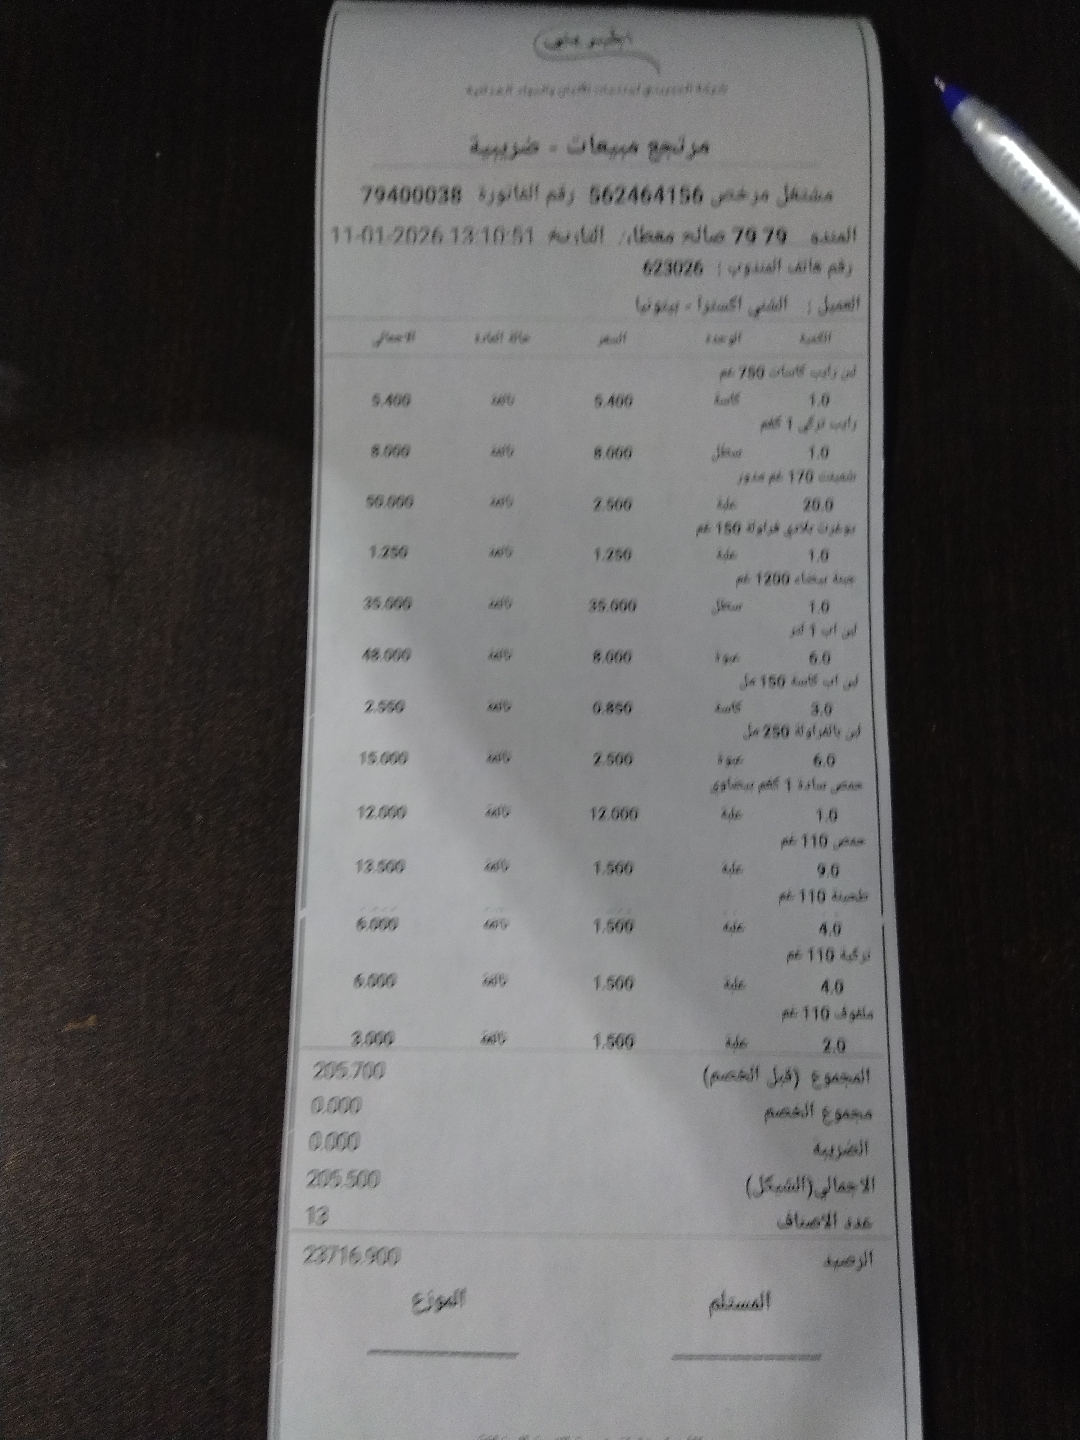 الجنيدي
شركة الجنيدي لمنتجات الألبان والمواد الغذائية
مرتجع مبيعات - ضريبية
مشتغل مرخص 562464156 رقم الفاتورة 79400038
المندو 79 79 صالح معطان/ التاريخ 11-01-2026 13:10:51
رقم هاتف المندوب : 623026
العميل : الشني اكسترا - بيتونيا
الكمية الوحدة السعر حالة المادة الاجمالي
لبن رايب كاسات 750 غم
1.0 كاسة 5.400 تالفة 5.400
رايب تركي 1 كغم
1.0 سطل 8.000 تالفة 8.000
شمينت 170 غم مدور
20.0 علبة 2.500 تالفة 50.000
يوغرت بلادي فراولة 150 غم
1.0 علبة 1.250 تالفة 1.250
جبنة بيضاء 1200 غم
1.0 سطل 35.000 تالفة 35.000
لبن اب 1 لتر
6.0 عبوة 8.000 تالفة 48.000
لبن اب كاسة 150 مل
3.0 كاسة 0.850 تالفة 2.550
لبن بالفراولة 250 مل
6.0 عبوة 2.500 تالفة 15.000
حمص سادة 1 كغم بيضاوي
1.0 علبة 12.000 تالفة 12.000
حمص 110 غم
9.0 علبة 1.500 تالفة 13.500
طحينة 110 غم
4.0 علبة 1.500 تالفة 6.000
تركية 110 غم
4.0 علبة 1.500 تالفة 6.000
ملفوف 110 غم
2.0 علبة 1.500 تالفة 3.000
المجموع (قبل الخصم) 205.700
مجموع الخصم 0.000
الضريبة 0.000
الاجمالي(الشيكل) 205.500
عدد الاصناف 13
الرصيد 23716.900
المستلم الموزع